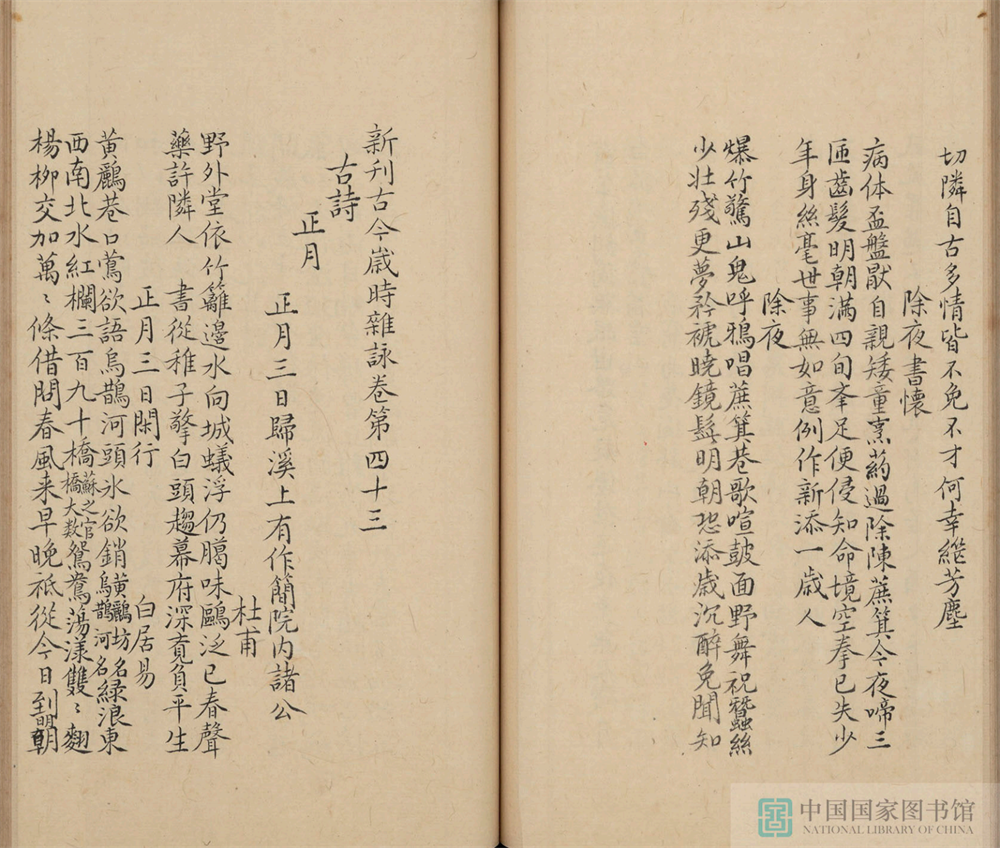 切隣自古多情皆不免不才何幸継芳塵
除夜書懷
病体盃盤猒自親矮童烹葯過除陳蔗箕今夜啼三
匝齒髮明朝滿四旬夆足便侵知命境空拳已失少
年身絲毫世事無如意例作新添一歲人
除夜
爆竹驚山鬼呼鴉唱蔗箕巷歌喧皷面野舞祝蠶絲
少壯殘更夢矜𧇊曉鏡髭明朝恐添歲沉醉免聞知
新刋古今歲時雜詠卷第四十三
古詩
正月
正月三日歸溪上有作簡院內諸公
杜甫
野外堂依竹籬邊水向城蟻浮仍臈味鷗泛已春聲
藥許隣人 書從稚子擎白頭趨幕府深覔負平生
正月三日閑行 白居易
黃鸝巷口鶯欲語烏鵲河頭氷欲銷黃鸝坊名烏鵲河名綠浪東
西南北水紅欄三百九十橋蘇之官橋大数鴛鴦蕩漾雙〻翅
楊栁交加萬〻條借問春風来早晚祇從今日到明朝
中国国家图书馆
NATIONAL LIBRARY OF CHINA